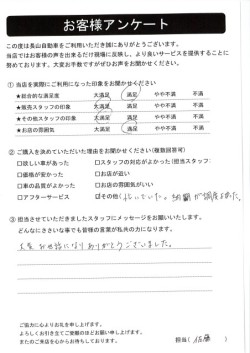 お客様アンケート
この度は長山自動車をご利用いただき誠にありがとうございます。
当店ではお客様の声を出来るだけ現場に反映し、より良いサービスを提供することに
努めております。大変お手数ですがぜひお声をお聞かせください。
① 当店を実際にご利用になった印象をお聞かせください
★総合的な満足度 大満足 満足 やや不満 不満
★販売スタッフの印象 大満足 満足 やや不満 不満
★その他スタッフの印象 大満足 満足 やや不満 不満
★お店の雰囲気 大満足 満足 やや不満 不満
② ご購入を決めていただいた理由をお聞かせください(複数回答可)
□欲しい車があった □スタッフの対応がよかった(担当スタッフ:
□価格が安かった □お店が近い
□車の品質がよかった □お店の雰囲気がいい
□アフターサービス □その他( 納期が
③ 担当させていただきましたスタッフにメッセージをお願いいたします。
どんなにささいな事でも皆様の言葉が私共の力になります。
大変お世話になりありがとうございました。
ご協力に心よりお礼を申し上げます。
よろしくお引き立てご愛顧のほどお願い申し上げます。
またのご来店を心からお待ちしております。
担当( 佐藤 )